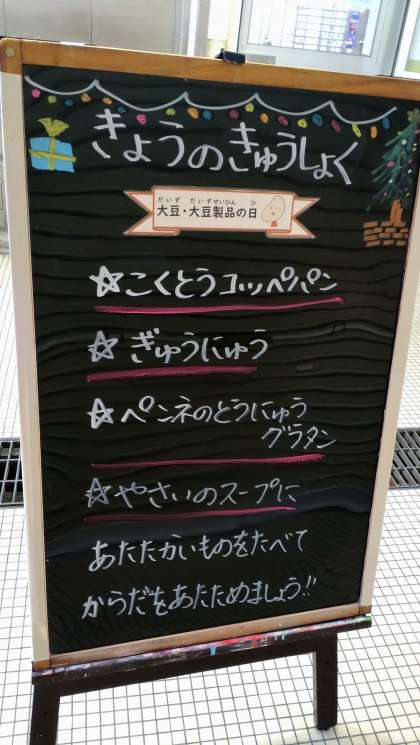 きょうのきゅうしょく
だいず だいずせいひん ひ
大豆・大豆製品の日
☆こくとうコッペパン
☆ぎゅうにゅう
☆ペンネのとうにゅう
グラタン
☆やさいのスープに
あたたかいものをたべて
からだをあたためましょう!!